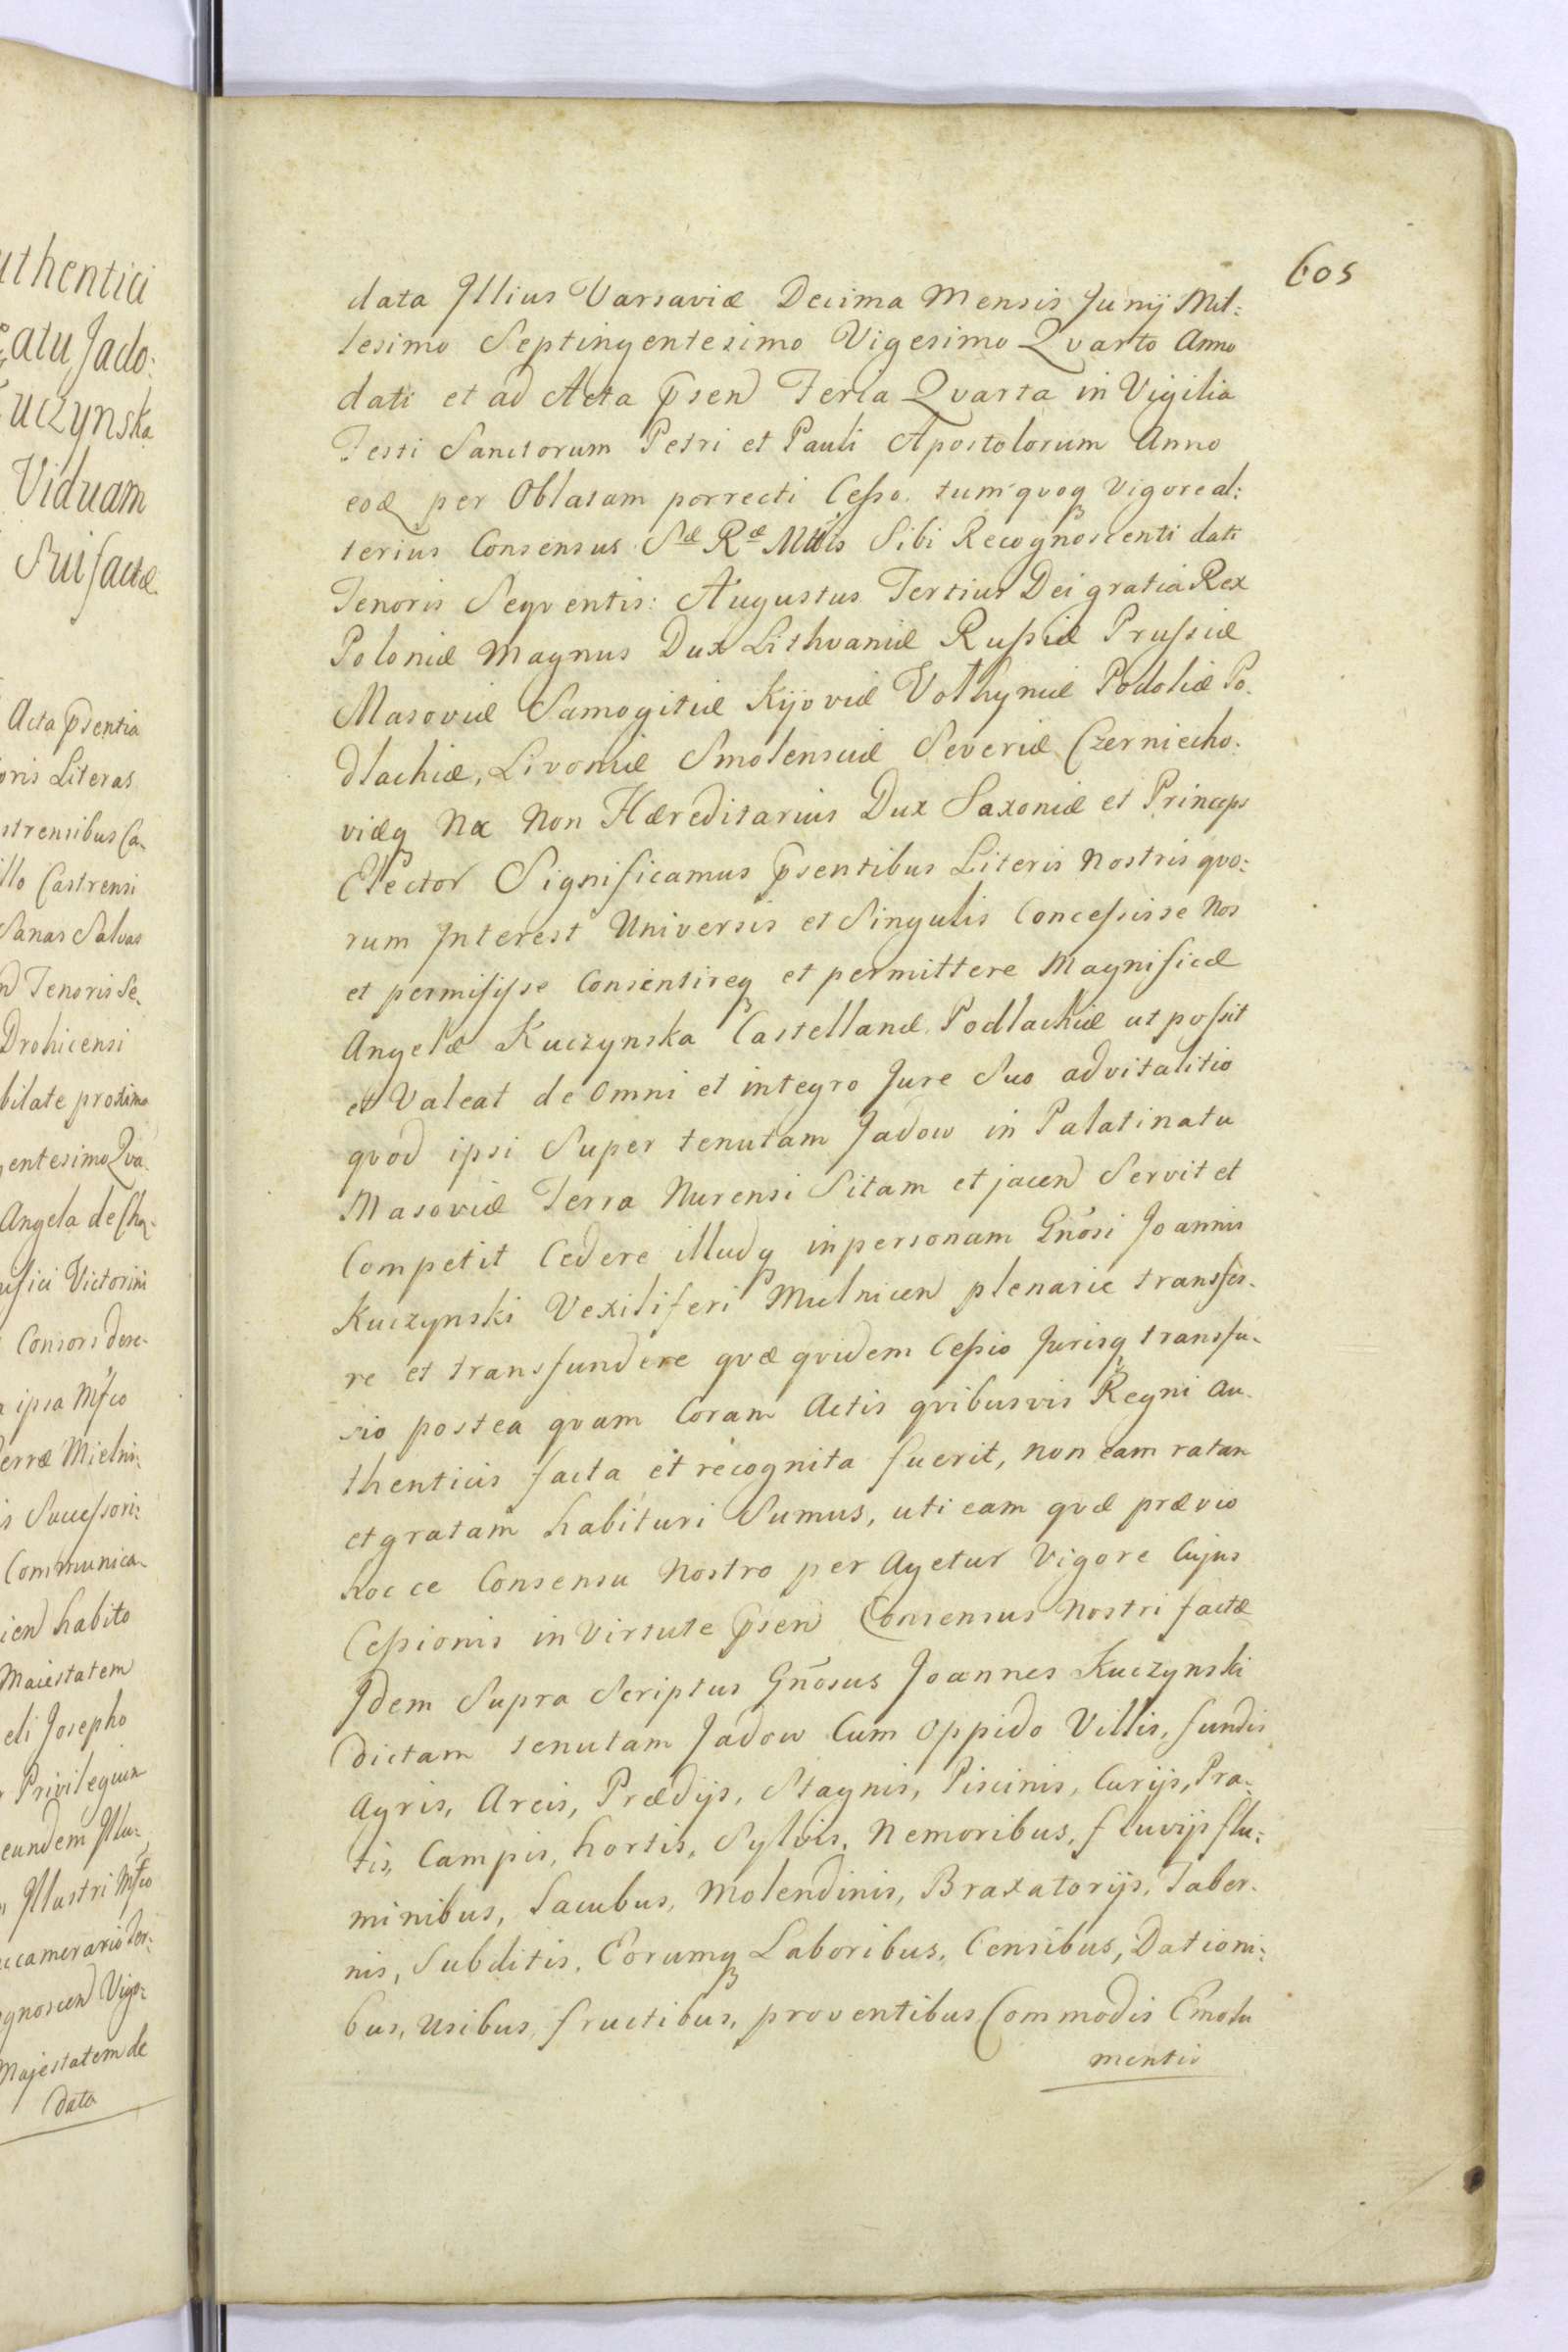 uthentici
atu Jado:
uczynska
Viduam
Sui factæ
Acta p̄sentia
oris Literas
strensibus Ca-
illo Castrensi
Sanas Salvas
Tenoris Se,
Drohicensi
bilate proxima
entesimo Qva.
Angela de
ifici Victorini
Consors dere-
ipsa Mfco
erræ Mielni:
is Successori:
Communica-
habito
Maiestatem
eli Josepho
Privilegium
eundem Illu:
Illustri Mfco
camerario Ter:
gnoscen Vigo:
Majestatem de
data
605
data Illius Varsaviæ Decima Mensis Junij Mil:
lesimo Septingentesimo Vigesimo Qvarto Anno
dati et ad Acta p̄sen Feria Qvarta in Vigilia
Festi Sanctorum Petri et Pauli Apostolorum Anno
eoq per Oblatam porrecti Cesso. tum qvoq Vigore al:
terius Consensus Sæ Ræ Mttis Sibi Recognoscenti dati
Tenoris Seqventis: Augustus Tertius Dei gratia Rex
Poloniæ Magnus Dux Lithvaniæ Russiæ Prussiæ
Masoviæ Samogitiæ Kijoviæ Volhyniæ Podoliæ Po.
dlachiæ, Livoniæ Smolensciæ Severiæ Czerniecho.
viæq Nec Non Hæreditarius Dux Saxoniæ et Princeps
Elector Significamus p̄sentibus Literis Nostris qvo:
rum Interest Universis et Singulis Concessisse Nos
et permisisse Consentireq et permittere Magnificæ
Angelæ Kuczynska Castellanæ Podlachiæ ut possit
et Valeat de Omni et integro Jure Suo advitalitio
qvod ipsi Super tenutam Jadow in Palatinatu
Masoviæ Terra Nurensi Sitam et jacen Servit et
Competit Cedere illudq in personam Gñosi Joannis
Kuczynski Vexiliferi Mielnicen plenarie transfer-
re et transfundere qvæ qvidem Cessio Jurisq transfu-
sio postea qvam Coram Actis qvibusvis Regni Au-
thenticis facta et recognita fuerit, non eam ratam
et gratam habituri Sumus, uti eam qvæ prævio
hocce Consensu Nostro per Agetur Vigore Cujus
Cessionis in Virtute p̄sen Consensus Nostri factæ
Idem Supra Scriptus Gñosus Joannes Kuczynski
dictam tenutam Jadow Cum Oppido Villis, fundis
Agris, Areis, Prædijs, Stagnis, Piscinis, Curijs, Pra-
tis, Campis, hortis, Sylvis, Nemoribus, fluvijs flu:
minibus, Lacubus, Molendinis, Braxatorijs, Taber-
nis, Subditis, Eorumq Laboribus, Censibus, Dationi:
bus, Usibus, fructibus, proventibus Commodis Emolu
mentis